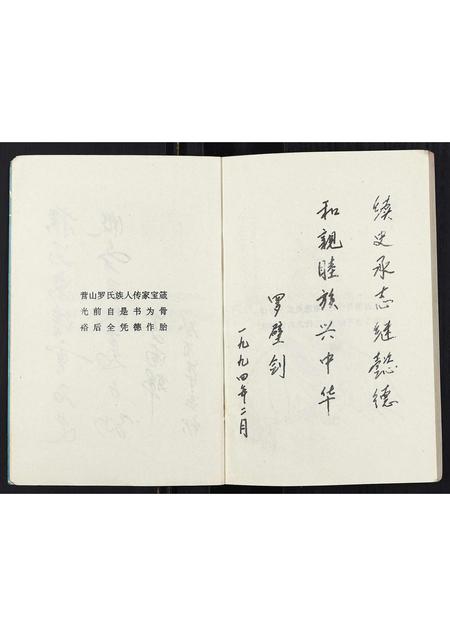 营山罗氏族人传家宝蒇
光前自是书为骨
裕后全凭德作胎
续史承志继懿德
和亲睦族兴中华
罗壁剑
一九九四年二月